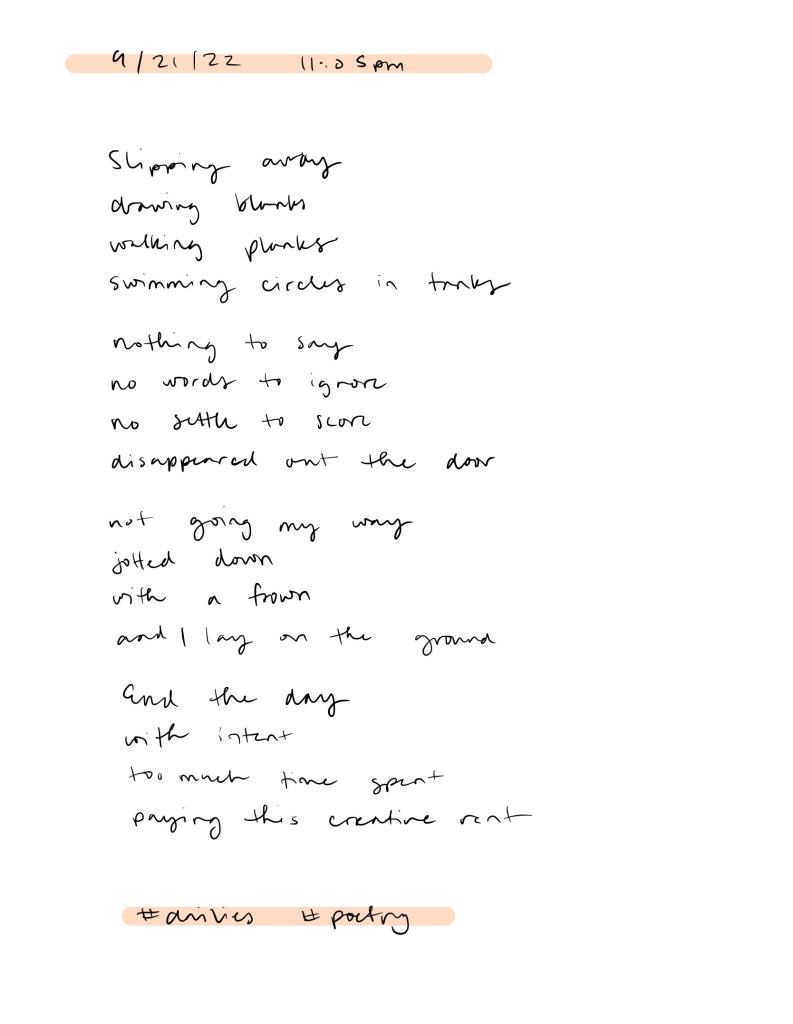 9/21/22 11:05pm
Slipping away
drawing blanks
walking planks
swimming circles in tanks
nothing to say
no words to ignore
no settle to score
disappeared out the door
not going my way
jotted down
with a frown
and I lay on the ground
End the day
with intent
too much time spent
paying this creative rent
#poetry